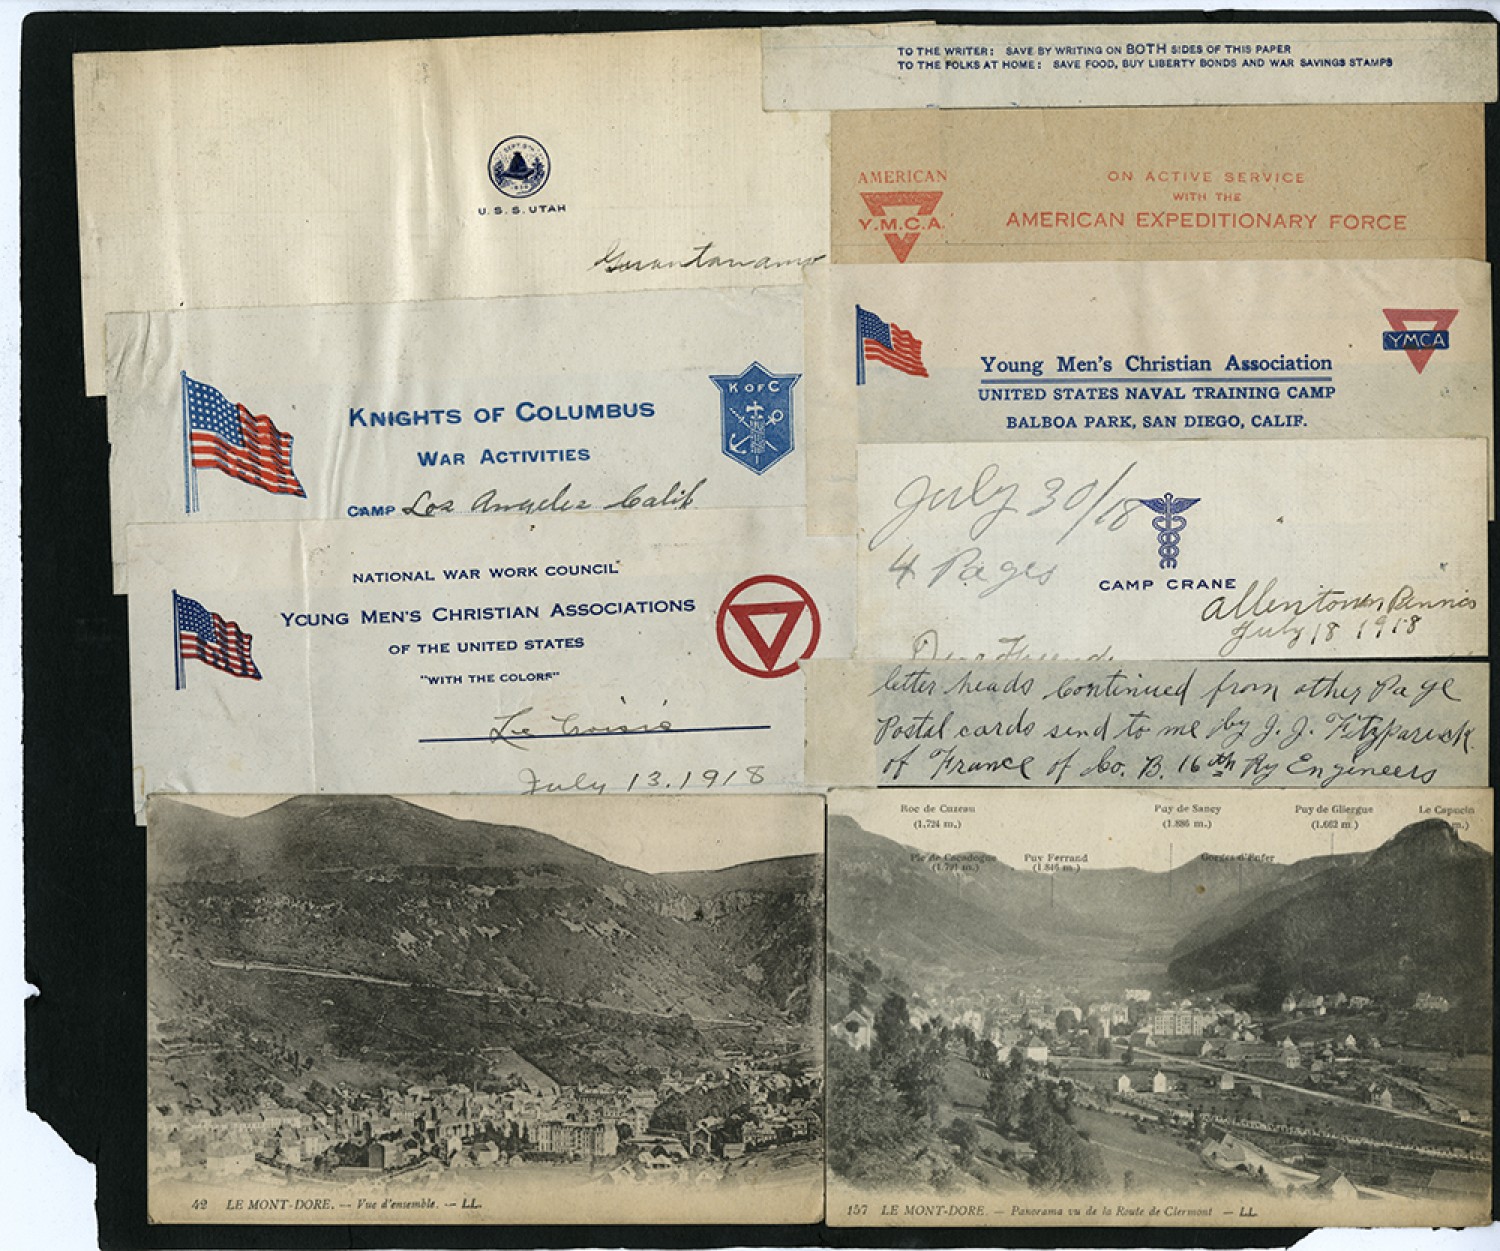 TO THE WRITER: SAVE BY WRITING ON BOTH SIDES OF THIS PAPER
TO THE FOLKS AT HOME: SAVE FOOD, BUY LIBERTY BONDS AND WAR SAVINGS STAMPS
SEPT. 9TH
U.S.S. UTAH
AMERICAN
Y.M.C.A.
ON ACTIVE SERVICE
WITH THE
AMERICAN EXPEDITIONARY FORCE
KNIGHTS OF COLUMBUS
WAR ACTIVITIES
CAMP Los Angeles Calif
K OF C
Young Men's Christian Association
UNITED STATES NAVAL TRAINING CAMP
BALBOA PARK, SAN DIEGO, CALIF.
YMCA
NATIONAL WAR WORK COUNCIL
YOUNG MEN'S CHRISTIAN ASSOCIATIONS
OF THE UNITED STATES
"WITH THE COLORS"
July 13. 1918
July 30/18
4 Pages
CAMP CRANE
Allentown
July 18 1918
letter heads Continued from other Page
Postal cards send to me by J. J. Fitzparick
of France of Co. B. 16th Ry Engineers
42 LE MONT-DORE. — Vue d'ensemble. — LL.
Roc de Cuzeau
(1.724 m.)
Puy de Sancy
(1.886 m.)
Puy de Cliergue
(1.662 m.)
Le Capucin
m.)
Pic de Cacadogne
(1.791 m.)
Puy Ferrand
(1.846 m.)
Gorges d'Enfer
157 LE MONT-DORE. — Panorama vu de la Route de Clermont — LL.